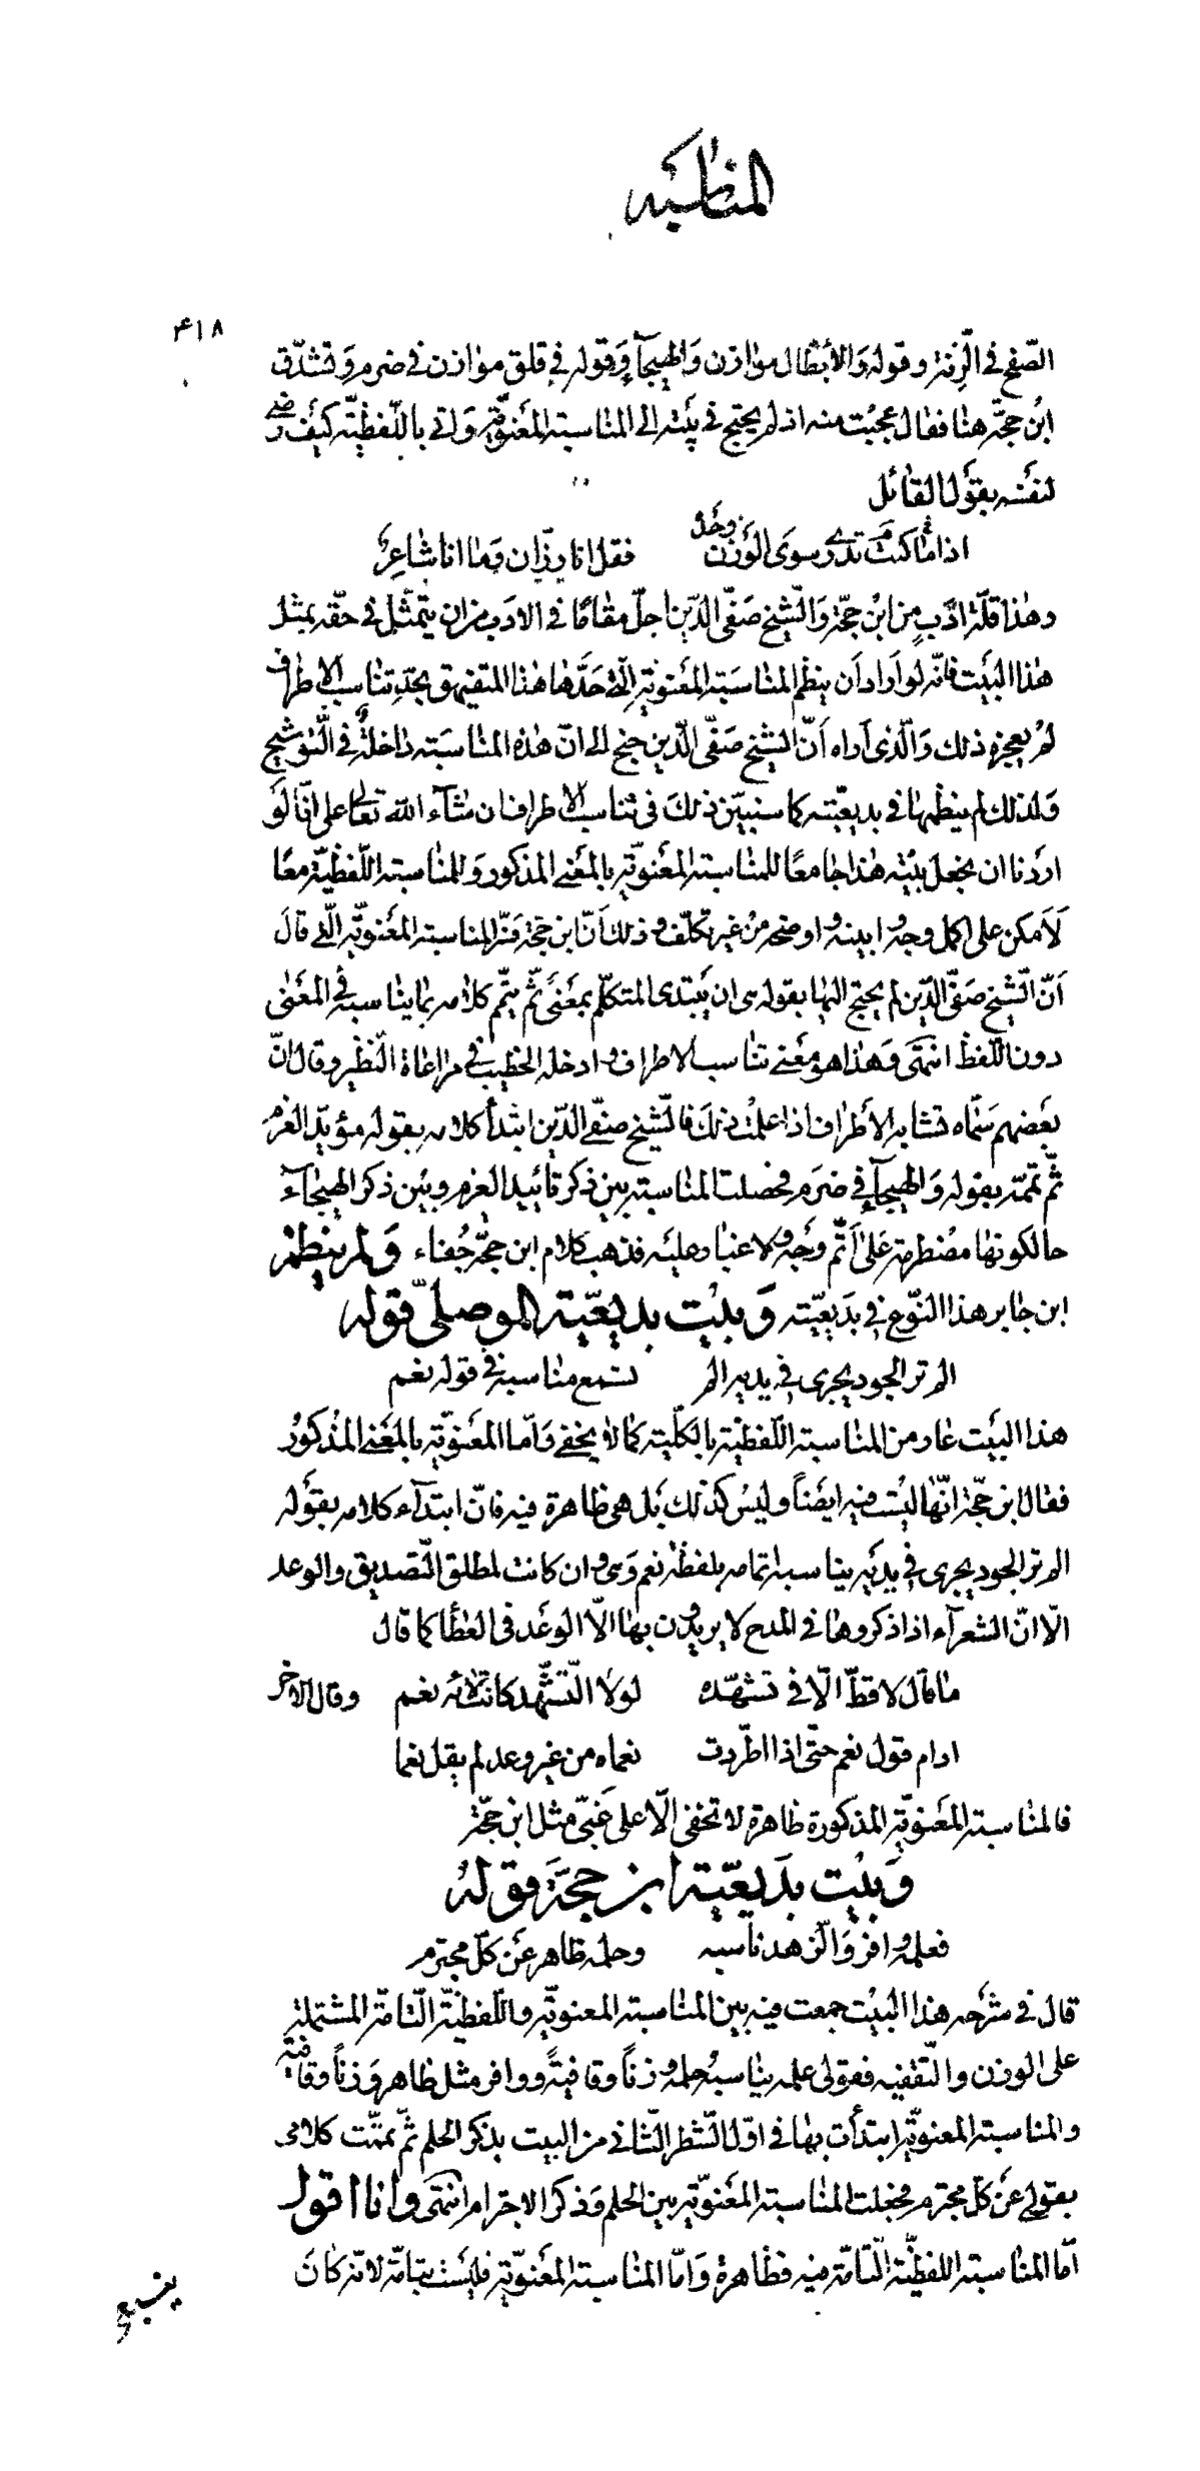 المناسبة
۴۱۸
الصّفح في الزّنة وقوله والأبطال موازن والهيجآء وقوله في قلق موازن في ضرم وتشدّق
ابن حجّة هنا فقال عجبت منه اذ لم يحتج في بيته الى المناسبة المعنويّة واتى باللّفظيّة كيف رضى
لنفسه بقول القائل
اذا ما كنت تدرى سوى الوزن وحده فقل انا وزّان وما انا شاعر
وهذا قلّة ادب من ابن حجّة والشّيخ صفىّ الدّين اجلّ مقاما في الادب من ان يتمثّل في حقّه بمثل
هذا البيت فانّه لو اراد ان ينظم المناسبة المعنويّة الّتى حدّها هذا المتفيهق بحدّ تناسب الاطراف
لم يعجزه ذلك والّذى اراه أنّ الشيخ صفىّ الدّين جنح الى انّ هذه المناسبة داخلة في التّوشيح
ولذلك لم ينظمها في بديعيّته كما سنبيّن ذلك في تناسب الاطراف ان شآء الله تعالى على انّا لو
اردنا ان نجعل بيته هذا جامعا للمناسبة المعنويّة بالمعنى المذكور وللمناسبة اللّفظيّة معا
لأمكن على اكمل وجه وابينه واوضحه من غير تكلّف وذلك أنّ ابن حجّة فسّر المناسبة المعنويّة الّتى قال
أنّ الشّيخ صفىّ الدّين لم يحتج اليها بقوله هى ان يبتدى المتكلّم بمعنى ثمّ يتمّم كلامه بما يناسبه في المعنى
دون اللّفظ انتهى وهذا هو معنى تناسب الاطراف وادخله الخطيب في مراعاة النّظير وقال انّ
بعضهم سمّاه تشابه الأطراف اذا علمت ذلك فالشّيخ صفىّ الدّين ابتدأ كلامه بقوله مؤيّد العزم
ثمّ تمّمه بقوله والهيجآء في ضرم فحصلت المناسبة بين ذكر تأييد العزم وبين ذكر الهيجآء
حالكونها مضطرمة على أتمّ وجه ولا غبار عليه فذهب كلام ابن حجّة جفاء ولم ينظم
ابن جابر هذا النّوع في بديعيّته وبيت بديعيّة الموصلىّ قوله
الم تر الجود يجرى في يديه الم تسمع مناسبة في قوله نعم
هذا البيت عار من المناسبة اللّفظيّة بالكلّية كما لا يخفى وأمّا المعنويّة بالمعنى المذكور
فقال ابن حجّة انّها ليست فيه ايضاً وليس كذلك بل هى ظاهرة فيه فانّ ابتدآء كلامه بقوله
الم تر الجود يجرى في يديه يناسبه اتمامه بلفظة نعم وهى وان كانت لمطلق التّصديق والوعد
الّا انّ الشعرآء اذا ذكروها في المدح لا يريدون بها الّا الوعد في العطا كما قال
ما قال لا قطّ الّا في تشهّده لولا التّشهّد كانت لائه نعم وقال الاخر
ادام قول نعم حتّى اذا اطّردت نعماه من غير وعد لم يقل نعما
فالمناسبة المعنويّة المذكورة ظاهرة لا تخفى الّا على غبىّ مثل ابن حجّة
وبيت بديعيّة ابن حجّة قوله
فعلمه وافر والزّهد ناسبه وحلمه ظاهر عن كلّ مجترم
قال في شرحه هذا البيت جمعت فيه بين المناسبة المعنويّة واللّفظيّة التّامّة المشتملة
على الوزن والتّقفيه فقولى علمه يناسبه حلمه وزناً وقافيةً ووافر مثل ظاهر وزناً وقافية
والمناسبة المعنويّة ابتدأت بها في اوّل الشّطر الثّانى من البيت بذكر الحلم ثمّ تمّمت كلامى
بقولى عن كلّ مجترم فجعلت المناسبة المعنويّة بين الحلم وذكر الاجترام انتهى وانا اقول
امّا المناسبة اللفظيّة التّامّة فيه فظاهرة وامّا المناسبة المعنويّة فليست بتامّة لانّه كان